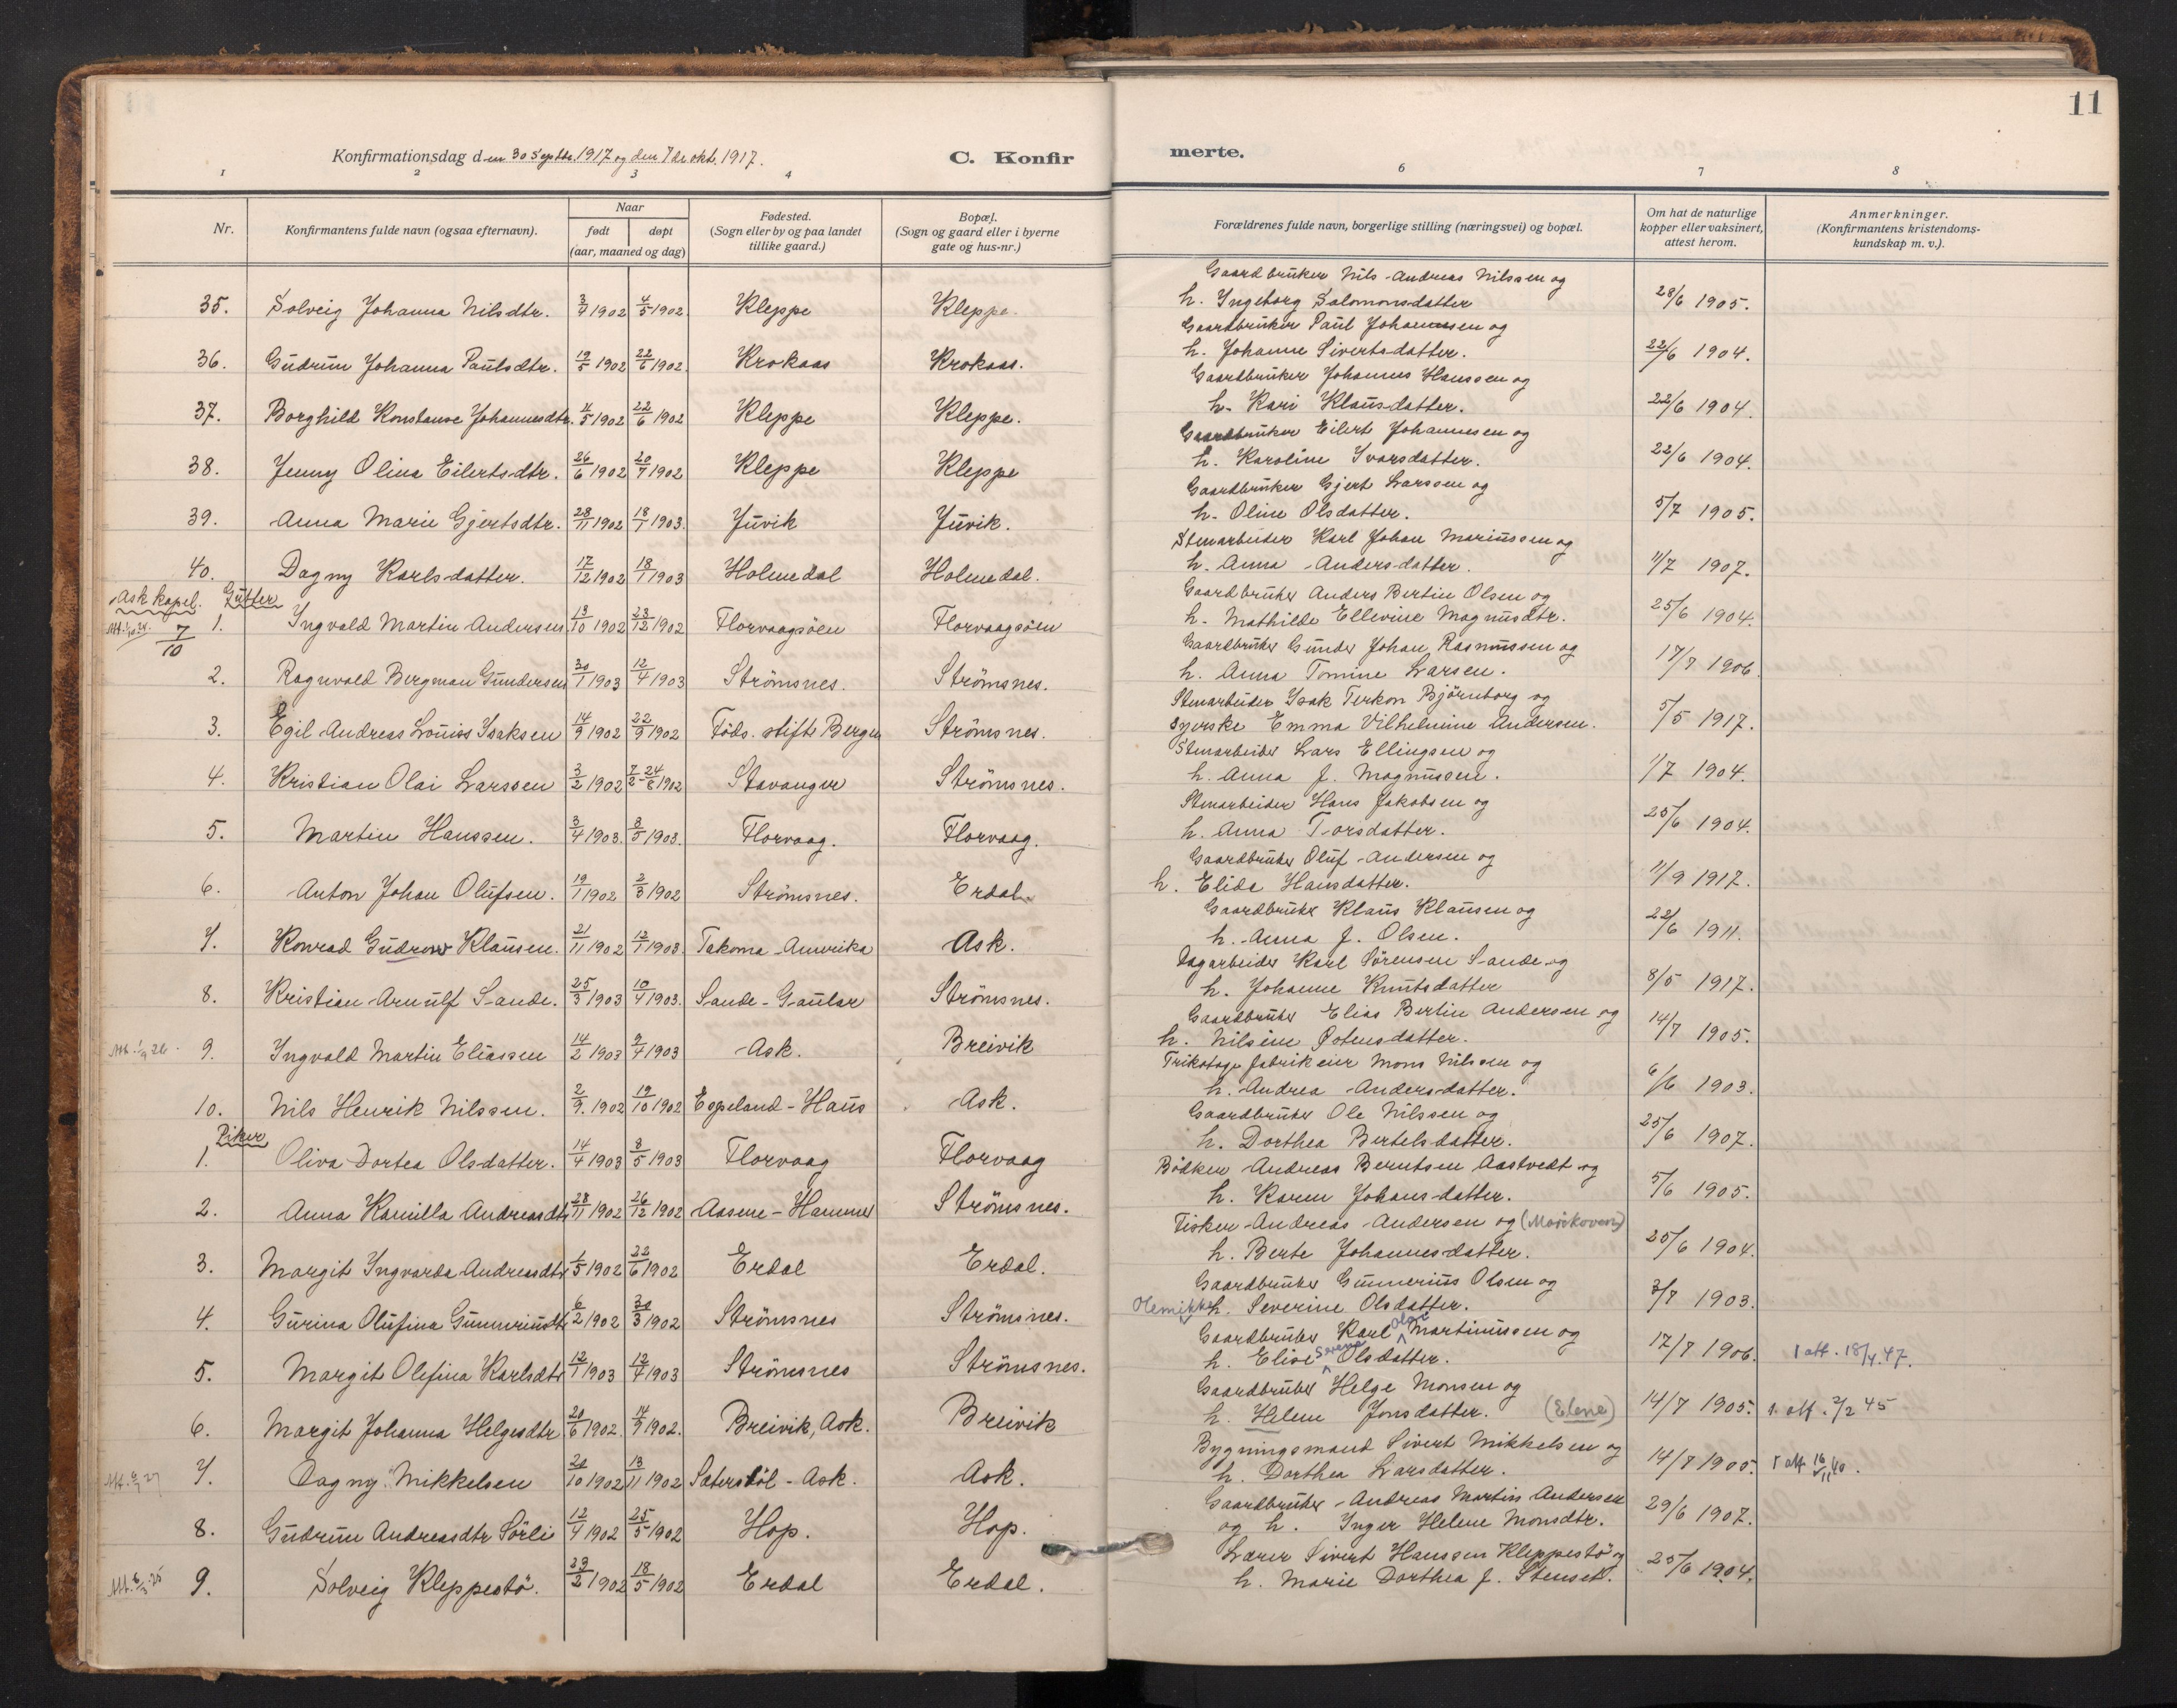 11
Konfirmationsdag den 30 Septbr. 1917 og den 7de okt. 1917.
C. Konfirmerte.
1 2 3 4 6 7 8
Nr.
Konfirmantens fulde navn (ogsaa efternavn).
Naar
født
døpt
(aar, maaned og dag)
Fødested.
(Sogn eller by og paa landet
tillike gaard.)
Bopæl.
(Sogn og gaard eller i byerne
gate og hus-nr.)
Forældrenes fulde navn, borgerlige stilling (næringsvei) og bopæl.
Om hat de naturlige
kopper eller vaksinert,
attest herom.
Anmerkninger.
(Konfirmantens kristendoms-
kundskap m. v.).
Gaardbruker Nils Andreas Nilssen og
35. Solveig Johanna Nilsdtr. 3/4 1902 4/5 1902. Kleppe Kleppe. h. Ingeborg Salomonsdatter 28/6 1905.
Gaardbruker Paul Johannessen og
36. Gudrun Johanna Paulsdtr. 19/5 1902 22/6 1902. Krokaas Krokaas. h. Johanne Sivertsdatter. 22/6 1904.
Gaardbruker Johannes Hanssen og
37. Borghild Konstanse Johannesdtr. 4/5 1902 22/6 1902 Kleppe Kleppe. h. Kari Klausdatter. 22/6 1904.
Gaardbruker Eilert Johannesen og
38. Jenny Olina Eilertsdtr. 26/6 1902 20/7 1902 Kleppe Kleppe h. Karoline Ivarsdatter. 22/6 1904.
Gaardbruker Gjert Larssen og
39. Anna Marie Gjertsdtr. 28/11 1902 18/1 1903. Juvik Juvik. h. Oline Olsdatter. 5/7 1905.
Stenarbeider Karl Johan Mariussen og
40. Dagny Karlsdatter. 17/12 1902 18/1 1903 Holmedal Holmedal. h. Anna Andersdatter. 11/7 1907.
Ask kapel. Gutter
7/10
Gaardbruker Anders Bertin Olsen og
1. Ingvald Martin Andersen 13/10 1902 23/12 1902 Florvaagsöen Florvaagsöen h. Mathilde Ellevine Magnusdtr. 25/6 1904.
Gaardbruker Gunder Johan Rasmussen og
2. Ragnvald Bergman Gundersen 30/1 1903 12/4 1903 Strömsnes. Strömsnes. h. Anna Tomine Larsen. 17/7 1906.
Stenarbeider Isak Terkon Björnborg og
3. Egil Andreas Louiss Isaksen 14/9 1902 22/9 1902 Föds. stift Bergen Strömsnes. syerske Emma Vilhelmine Andersen. 5/5 1917.
Stenarbeider Lars Ellingsen og
4. Kristian Olai Larssen 3/2 1902 7/2-24/6 1902 Stavanger Strömsnes. h. Anna J. Magnussen. 1/7 1904.
Stenarbeider Hans Jakobsen og
5. Martin Hanssen. 3/4 1903. 8/5 1903. Florvaag. Florvaag. h. Anna Torsdatter. 25/6 1904.
Gaardbruker Oluf Andersen og
6. Anton Johan Olufsen. 19/1 1902 2/3 1902 Strömsnes. Erdal. h. Elida Hansdatter. 11/9 1917.
Gaardbruker Klaus Klausen og
7. Konrad Gudrow Klausen. 21/11 1902 12/1 1903. Takoma-Amerika Ask. h. Anna J. Olsen. 22/6 1911.
Dagarbeider Karl Sörensen Sande og
8. Kristian Arnulf Sande. 25/3 1903 10/4 1903. Sande-Gaular Strömsnes. h. Johanne Knutsdatter 8/5 1917.
Gaardbruker Elias Bertin Andersen og
9. Ingvald Martin Eliassen 14/2 1903 9/4 1903 Ask. Breivik h. Nilsine Potensdatter. 14/7 1905.
Trikotage fabrikeier Mons Nilssen og
10. Nils Henrik Nilssen. 2/9. 1902 19/10 1902 Espeland-Haus Ask. h. Andrea Andersdatter. 6/6 1903.
Piker
Gaardbruker Ole Nilssen og
1. Oliva Dortea Olsdatter. 14/4 1903 8/5 1903 Florvaag Florvaag h. Dorthea Bertelsdatter. 25/6 1907.
Bödker Andreas Berntsen Aastvedt og
2. Anna Kamilla Andreasdtr 28/11 1902 26/12 1902 Aasene-Hammer Strömsnes. h. Karen Johansdatter. 5/6 1905.
Fisker Andreas Andersen og (Marikoven)
3. Margit Ingvarda Andreasdtr 1/5 1902 22/6 1902 Erdal Erdal. h. Berte Johannesdatter. 25/6 1904.
Gaardbruker Gunnerius Olsen og
4. Gurina Olufina Gunneriusdtr 6/2 1902 30/3 1902 Strömsnes Strömsnes. h. Severine Olsdatter. 3/7 1903.
Gaardbruker Karl Olai Martinussen og
5. Margit Olefina Karlsdtr 12/1 1903 12/4 1903 Strömsnes Strömsnes. h. Elise Serena Olsdatter. 17/7 1906. 1 att. 18/4.47.
Gaardbruker Helge Monsen og
6. Margit Johanna Helgesdtr 20/6 1902. 14/9 1902. Breivik, Ask. Breivik h. Helene Jonsdatter. (Elene) 14/7 1905. 1. att. 2/2 45
Bygningsmand Sivert Mikkelsen og
7. Dagny Mikkelsen 20/10 1902 13/11 1902 Sætersböl-Ask. Ask. h. Dorthea Larsdatter. 14/7 1905. 1 att 16/11 40.
Gaardbruker Andreas Martin Andersen
8. Gudrun Andreasdtr Sörli 12/4 1902 25/5 1902 Hop. Hop. og h. Inger Helene Monsdtr. 29/6 1907.
Lærer Sivert Hanssen Kleppestö og
9. Solveig Kleppestö. 23/2 1902 18/5 1902 Erdal Erdal. h. Marie Dorthea J. Stenset. 25/6 1904.